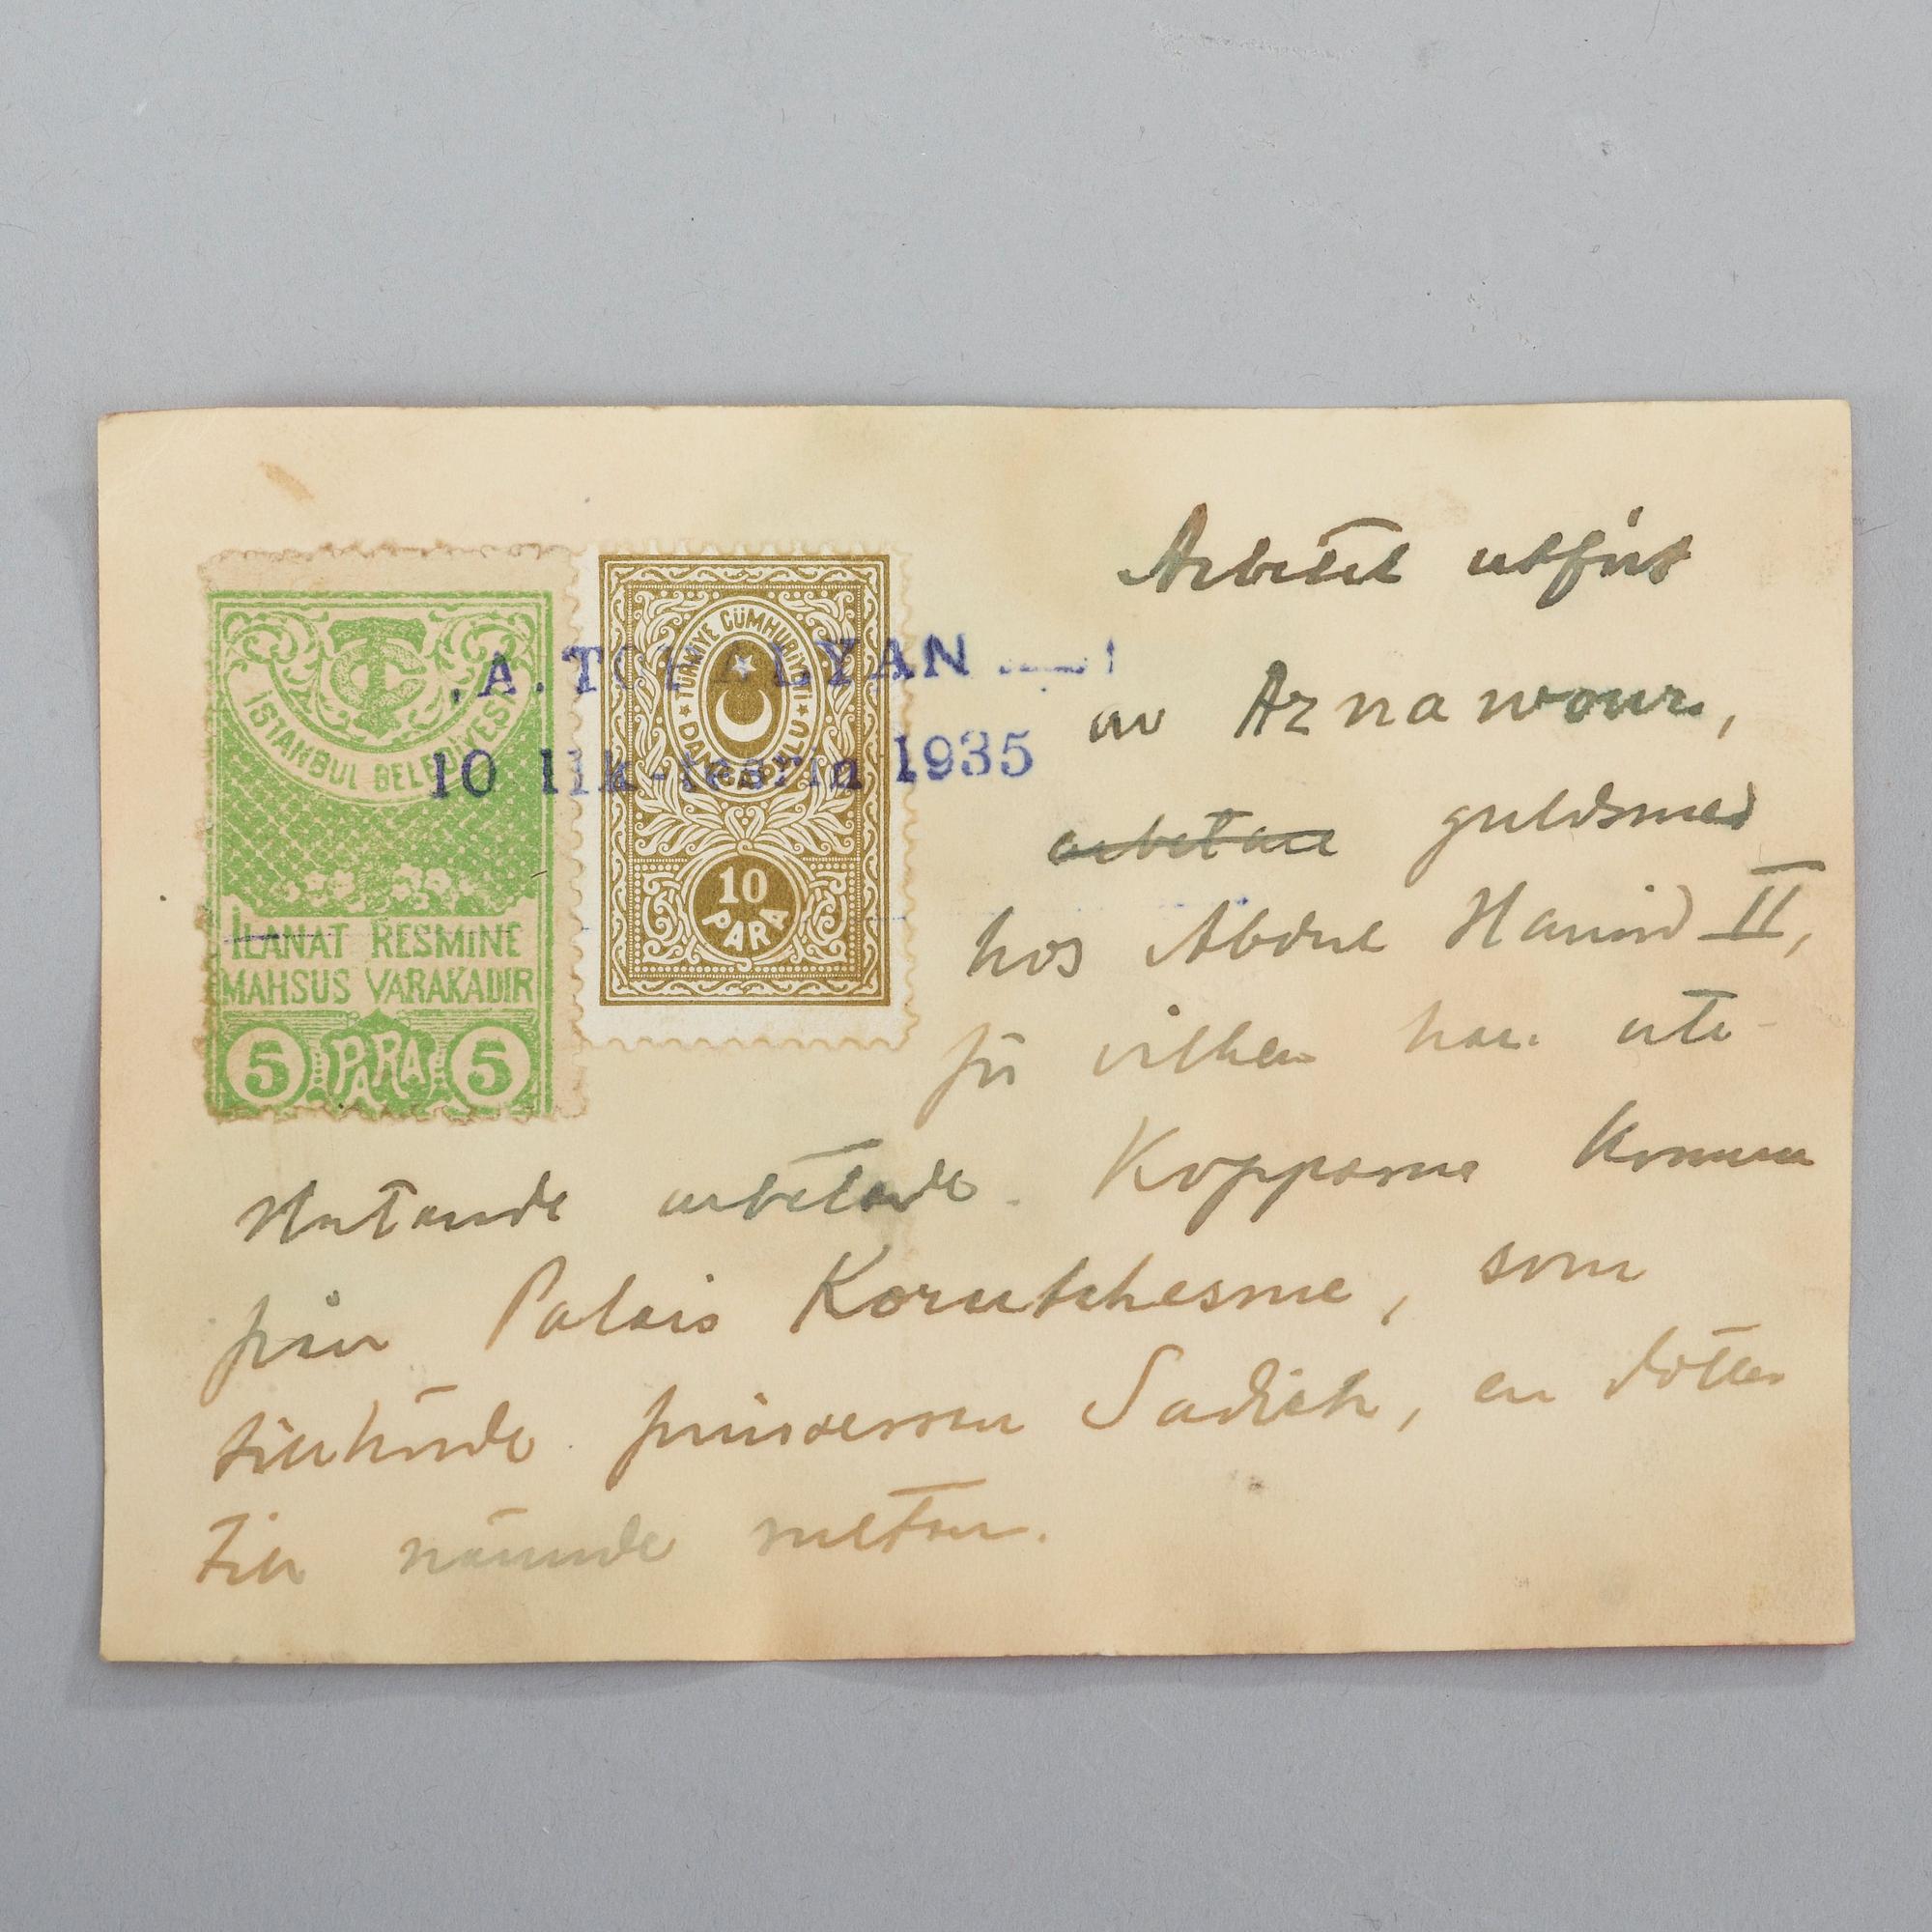 TC
İSTANBUL BELEDİYESİ
İLANAT RESMİNE
MAHSUS VARAKADIR
5 PARA 5
TÜRKİYE CÜMHURİYETİ
DAMGA PULU
10
PARA
A. TOPALYAN
10 Ilk-teşrin 1935
Arbetet utfört
av Aznawour,
arbetare guldsmed
hos Abdul Hamid II,
för vilken han ute-
slutande arbetade. Kopparna komma
från Palais Korutchesme, som
tillhörde prinsessan Sadieh, en dotter
till nämnde sultan.